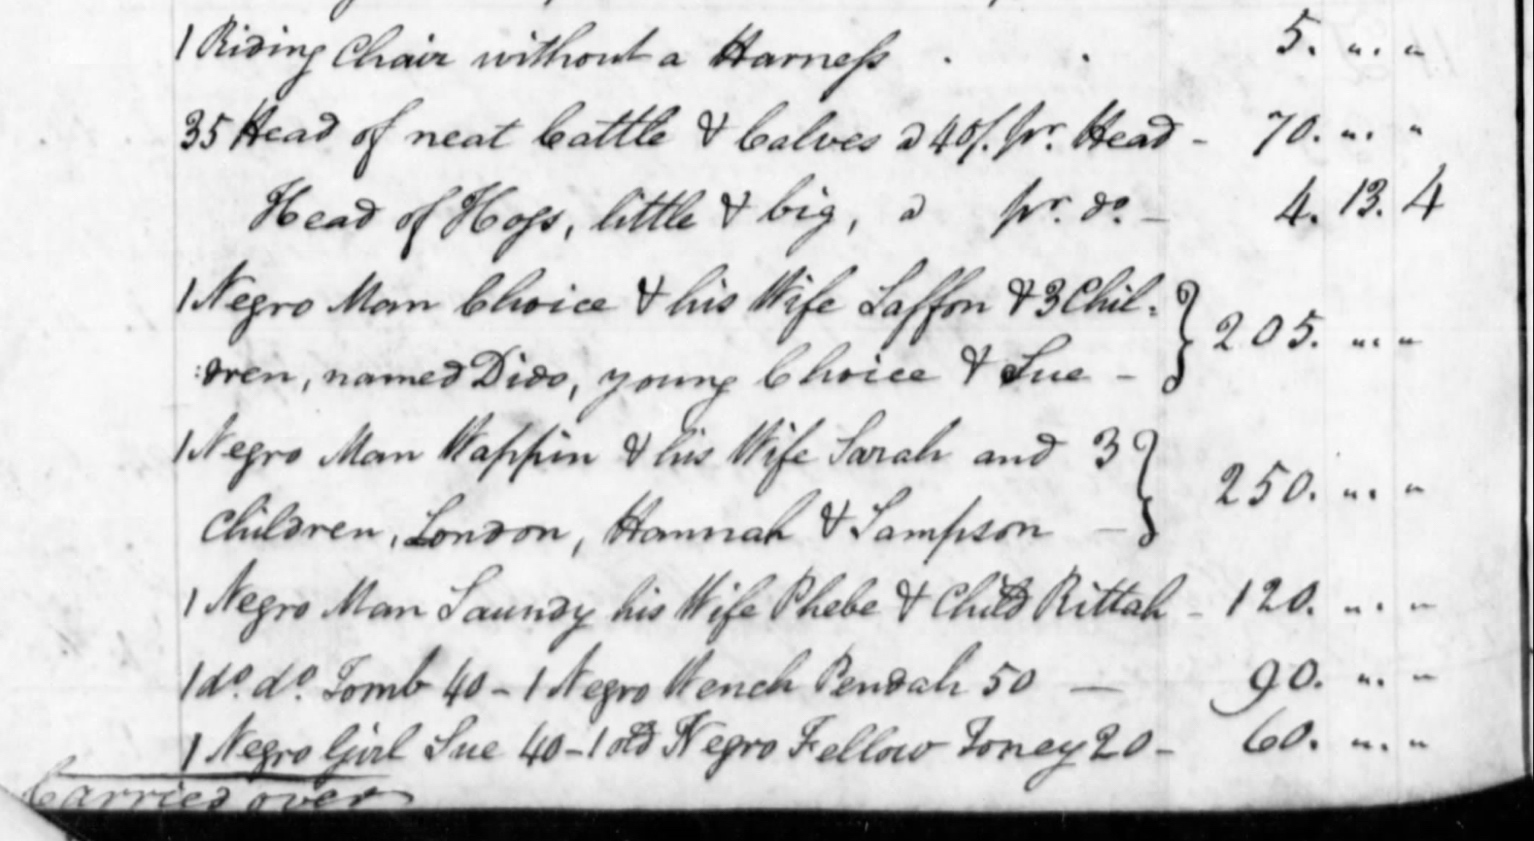 1 Riding Chair without a Harness . . 5. „. „
35 Head of neat Cattle & Calves a 40/. pr. Head - 70. „. „
Head of Hogs, little & big, a pr. do. - 4. 13. 4
1 Negro Man Choice & his Wife Saffon & 3 Chil-
:dren, named Dido, young Choice & Sue - } 205. „. „
1 Negro Man Wappin & his Wife Sarah and 3
Children, London, Hannah & Sampson - } 250. „. „
1 Negro Man Saundy his Wife Phebe & Child Rittah - 120. „. „
1 do. do. Tomb 40 - 1 Negro Wench Pendah 50 — 90. „. „
1 Negro Girl Sue 40 - 1 old Negro Fellow Toney 20 - 60. „. „
Carried over